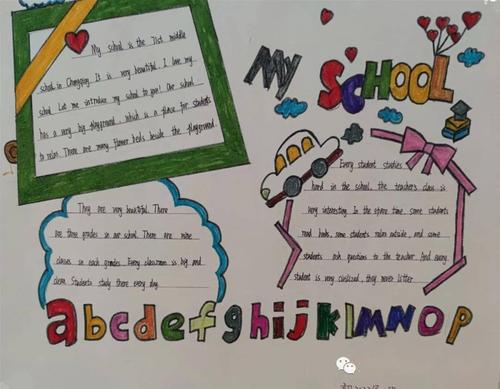 My school is the 71st middle
school in Chongqing. It is very beautiful. I love my
school. Let me introduce my school to you! Our school
has a very big playground, which is a place for students
to relax. There are many flower beds beside the playground.
MY SCHOOL
They are very beautiful. There
are three grades in our school. There are nine
classes in each grades. Every classroom is big and
clean. Students study there every day.
Every student studies
hard in the school, the teacher's class is
very interesting. In the spare time, some students
read books, some students relax outside, and some
students ask questions to the teacher. And every
student is very civilized, they never litter
abcdefghijklMNOP